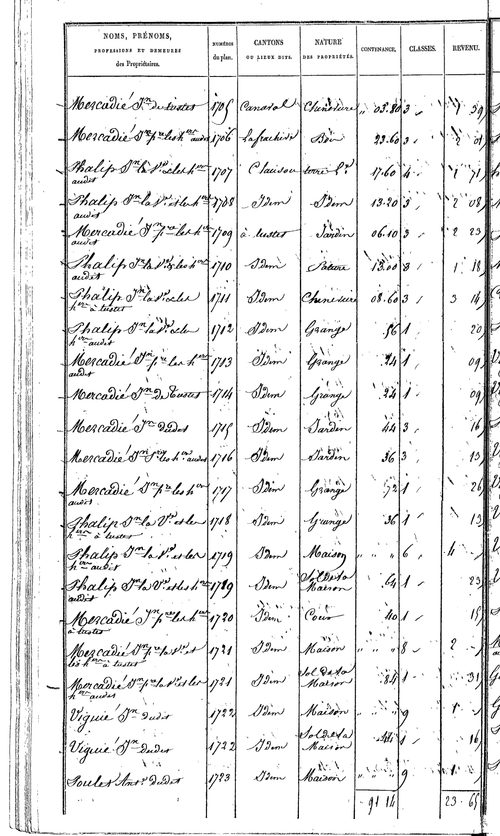 NOMS, PRÉNOMS, PROFESSIONS ET DEMEURES des Propriétaires. NUMÉROS du plan. CANTONS OU LIEUX DITS. NATURE DES PROPRIÉTÉS. CONTENANCE. CLASSES. REVENU.
Mercadié Jn de tustes 1705 Canaval Cheneviere 03.80 3 1 39
Mercadié Jn pre les hers audet 1706 23.60 3 2 01
Phalip Jn la Ve et les hers audet 1707 Clausou terre Le 17.60 4 1 71
Phalip Jn la Ve et les hers audet 1708 Idem Idem 13.20 3 2 08
Mercadié Jn pre les hers audet 1709 à tustes Jardin 06.10 3 2 23
Phalip Jn la Ve & les hers audet 1710 Idem Pature 13.00 3 1 18
Phalip Jn la Ve et les hers à tustes 1711 Idem Cheneviere 08.60 3 3 14
Phalip Jn la Ve et les hers audet 1712 Idem Grange 56 1 20
Mercadié Jn pre les hers audet 1713 Idem Grange 24 1 09
Mercadié Jn de tustes 1714 Idem Grange 24 1 09
Mercadié Jn dudet 1715 Idem Jardin 44 3 16
Mercadié Jn pre les hers audet 1716 Idem Jardin 36 3 13
Mercadié Jn pre les hers audet 1717 Idem Grange 72 1 26
Phalip Jn la Ve et les hers à tustes 1718 Idem Grange 36 1 13
Phalip Jn la Ve et les hers audet 1719 Idem Maison " " 6 4 "
Phalip Jn la Ve et les hers audet 1719 Idem Sol de la Maison 64 1 23
Mercadié Jn pre les hers à tustes 1720 Idem Cour 40 1 15
Mercadié Jn pre la Ve et les hers à tustes 1721 Idem Maison " " 8 2 "
Mercadié Jn pre la Ve et les hers audet 1721 Idem Sol de la Maison 84 1 31
Viguié Jn dudet 1722 Idem Maison " " 9 1 "
Viguié Jn dudet 1722 Idem Sol de la Maison 44 1 16
Soulet Ant. dudet 1723 Idem Maison " " 9 1 "
91 14 23 65